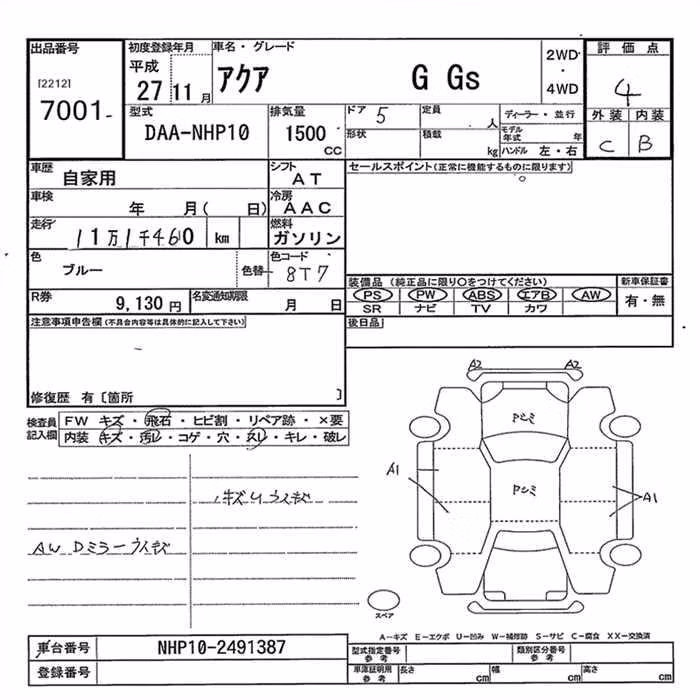 出品番号 初度登録年月 車名・グレード 2WD 評価点
[2212] 平成 ・ 4
7001- 27 11月 アクア G Gs 4WD 外装 内装
型式 排気量 ドア 5 定員 人 ディーラー・並行 C B
DAA-NHP10 1500 CC 形状 積載 kg モデル年式 年
ハンドル 左・右
車歴 自家用 シフト AT セールスポイント(正常に機能するものに限ります)
車検 年 月( 日) 冷房 AAC
走行 11万1千460 km 燃料 ガソリン
色 ブルー 色替 色コード 8T7
装備品 (純正品に限り〇をつけてください) 新車保証書
R券 9,130円 名変通知期限 月 日 PS PW ABS エアB AW 有・無
SR ナビ TV カワ
注意事項申告欄(不具合内容等は具体的に記入して下さい) 後日品
修復歴 有〔箇所 〕
検査員記入欄 FW キズ・飛石・ヒビ割・リペア跡・×要
内装・キズ・汚レ・コゲ・穴・スレ・キレ・破レ
A2 A2
Pシミ
A1 Pシミ A1
AW Dミラーうすキズ
スペア
A-キズ E-エクボ U-凹み W-補修跡 S-サビ C-腐食 XX-交換済
車台番号 NHP10-2491387 型式指定番号 参考 類別区分番号 参考
登録番号 車庫証明用 参考 長さ cm 幅 cm 高さ cm